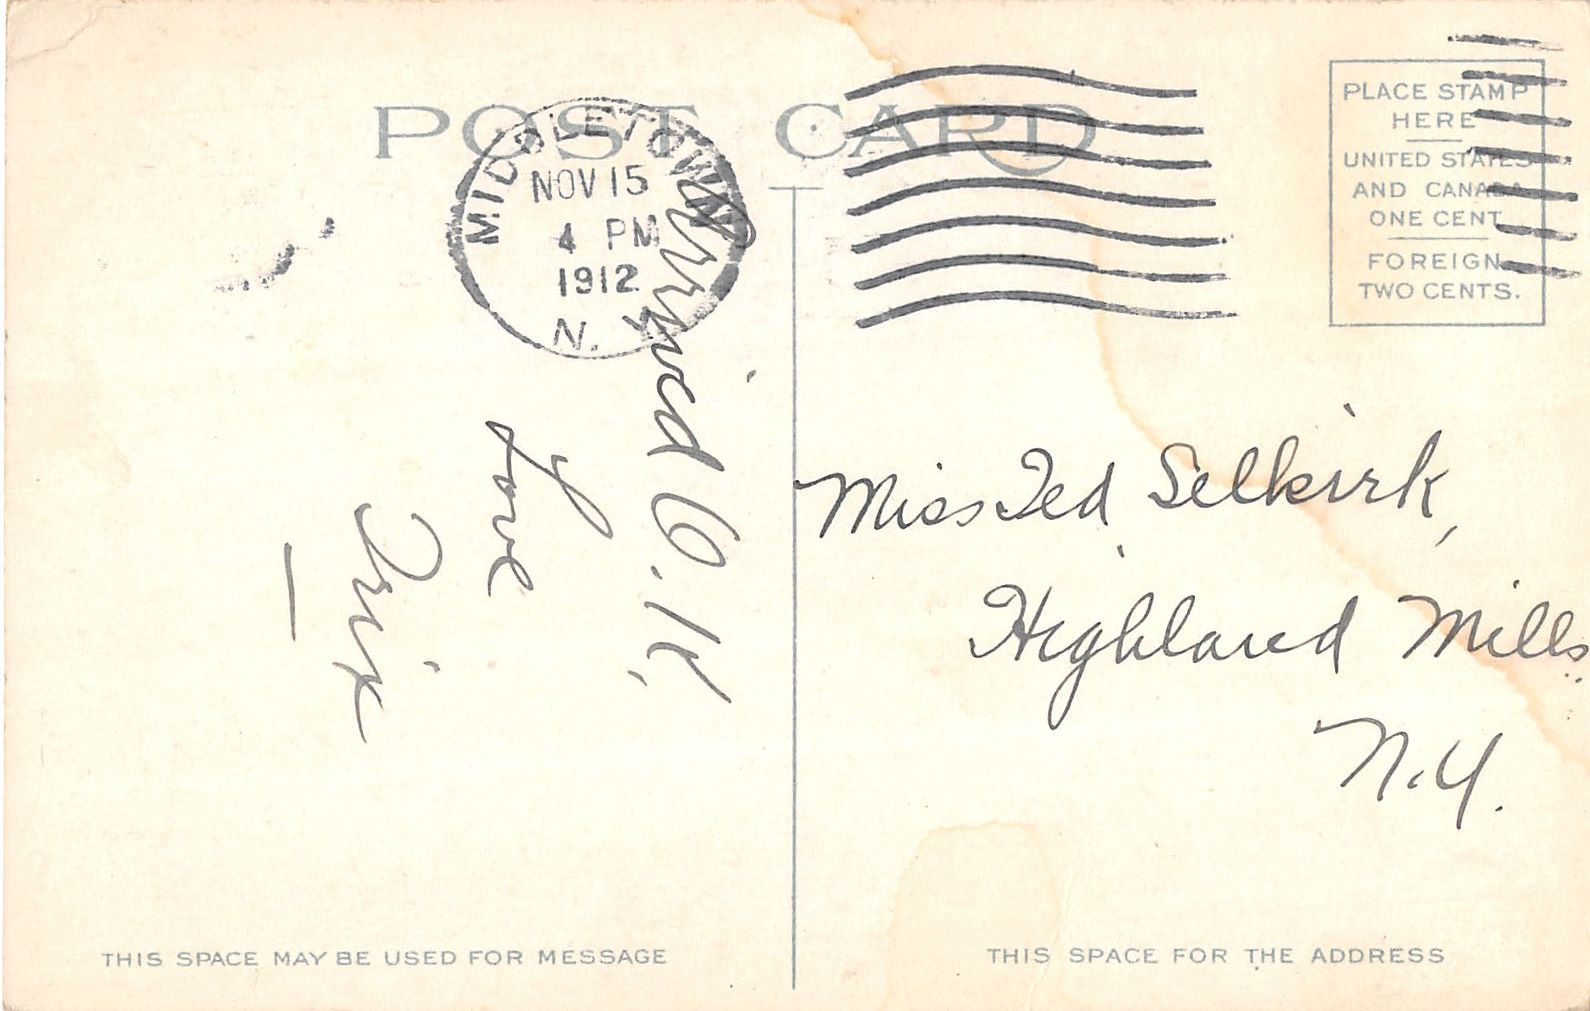 POST CARD
MIDDLETOWN
NOV 15
4 PM
1912
N. Y.
PLACE STAMP
HERE
UNITED STATES
AND CANADA
ONE CENT
FOREIGN
TWO CENTS.
Arrived O.K.
Love
Trix
Miss Ted Selkirk,
Highland Mills
N.Y.
THIS SPACE MAY BE USED FOR MESSAGE
THIS SPACE FOR THE ADDRESS